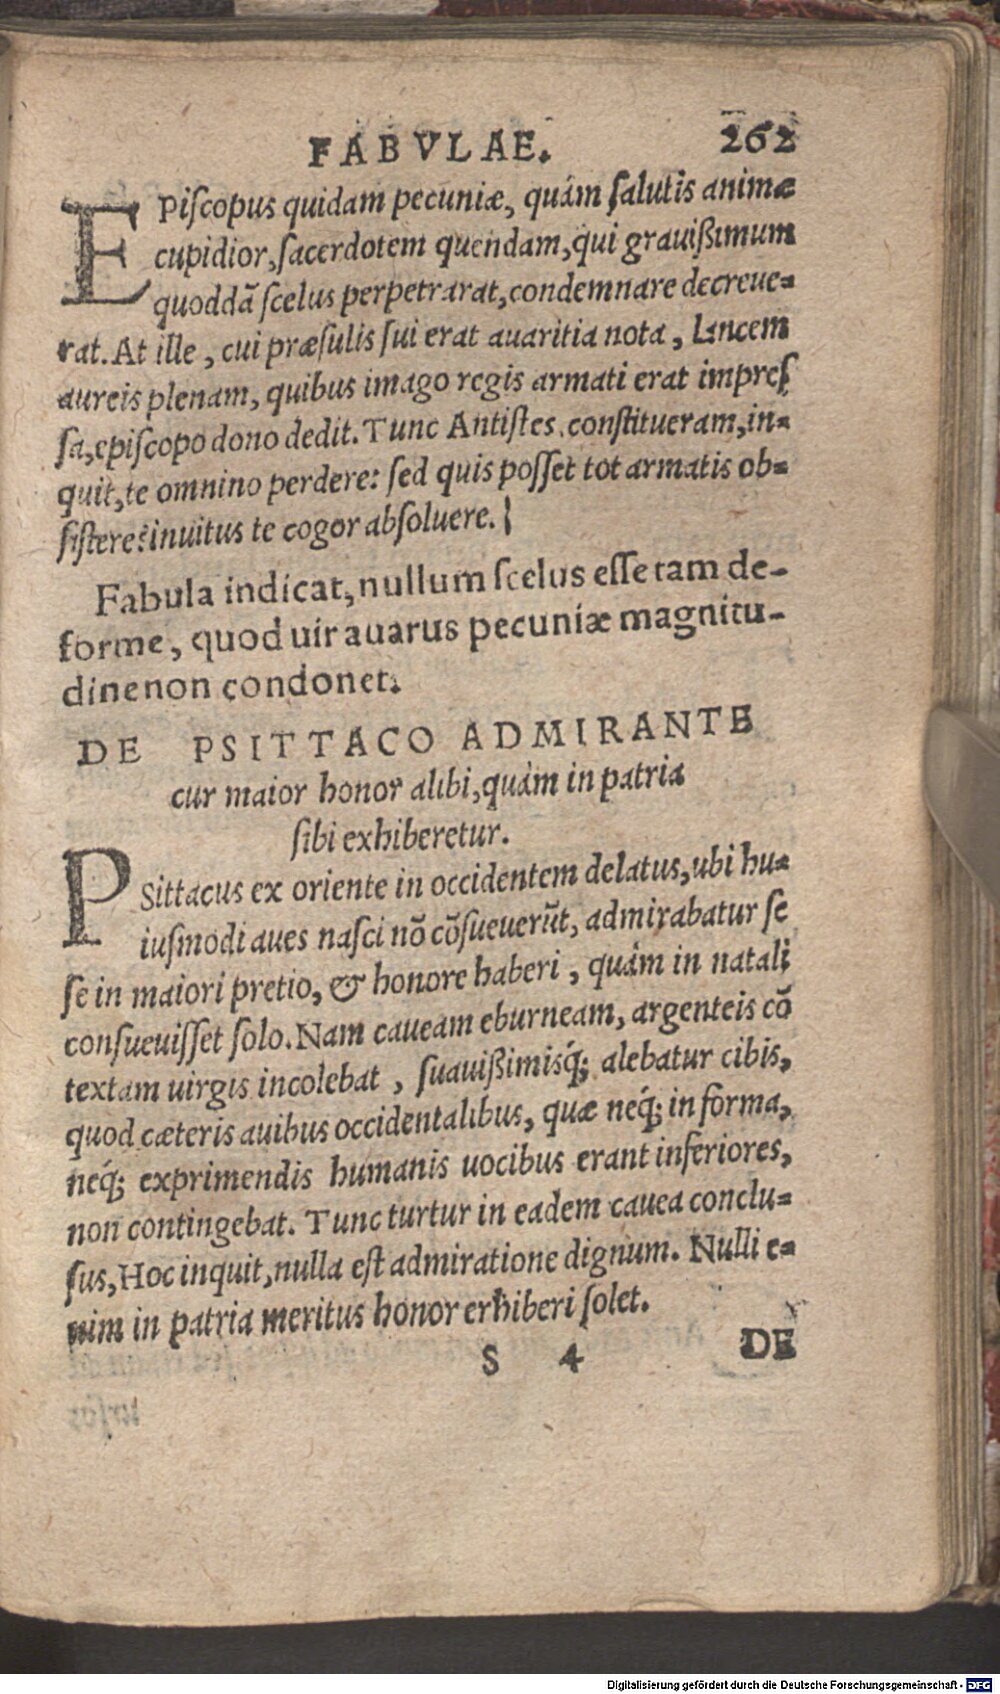 FABVLAE. 262
EPiſcopus quidam pecuniæ, quám ſalutis animæ
cupidior, ſacerdotem quendam, qui grauiſsimum
quoddã ſcelus perpetrarat, condemnare decreue-
rat. At ille, cui præſulis ſui erat auaritia nota, Lancem
aureis plenam, quibus imago regis armati erat impreſ
ſa, epiſcopo dono dedit. Tunc Antiſtes, conſtitueram, in-
quit, te omnino perdere: ſed quis poſſet tot armatis ob-
ſiſtere? inuitus te cogor abſoluere.
Fabula indicat, nullum ſcelus eſſe tam de-
forme, quod uir auarus pecuniæ magnitu-
dine non condonet.
DE PSITTACO ADMIRANTE
cur maior honor alibi, quàm in patria
ſibi exhiberetur.
PSittacus ex oriente in occidentem delatus, ubi hu-
iuſmodi aues naſci nõ cõſueuerũt, admirabatur ſe
ſe in maiori pretio, & honore haberi, quàm in natali
conſueuiſſet ſolo. Nam caueam eburneam, argenteis cõ
textam uirgis incolebat, ſuauiſsimisq́; alebatur cibis,
quod cæteris auibus occidentalibus, quæ neq́; in forma,
neq́; exprimendis humanis uocibus erant inferiores,
non contingebat. Tunc turtur in eadem cauea conclu-
ſus, Hoc inquit, nulla eſt admiratione dignum. Nulli e-
nim in patria meritus honor erhiberi ſolet.
S 4 DE
Digitalisierung gefördert durch die Deutsche Forschungsgemeinschaft - DFG